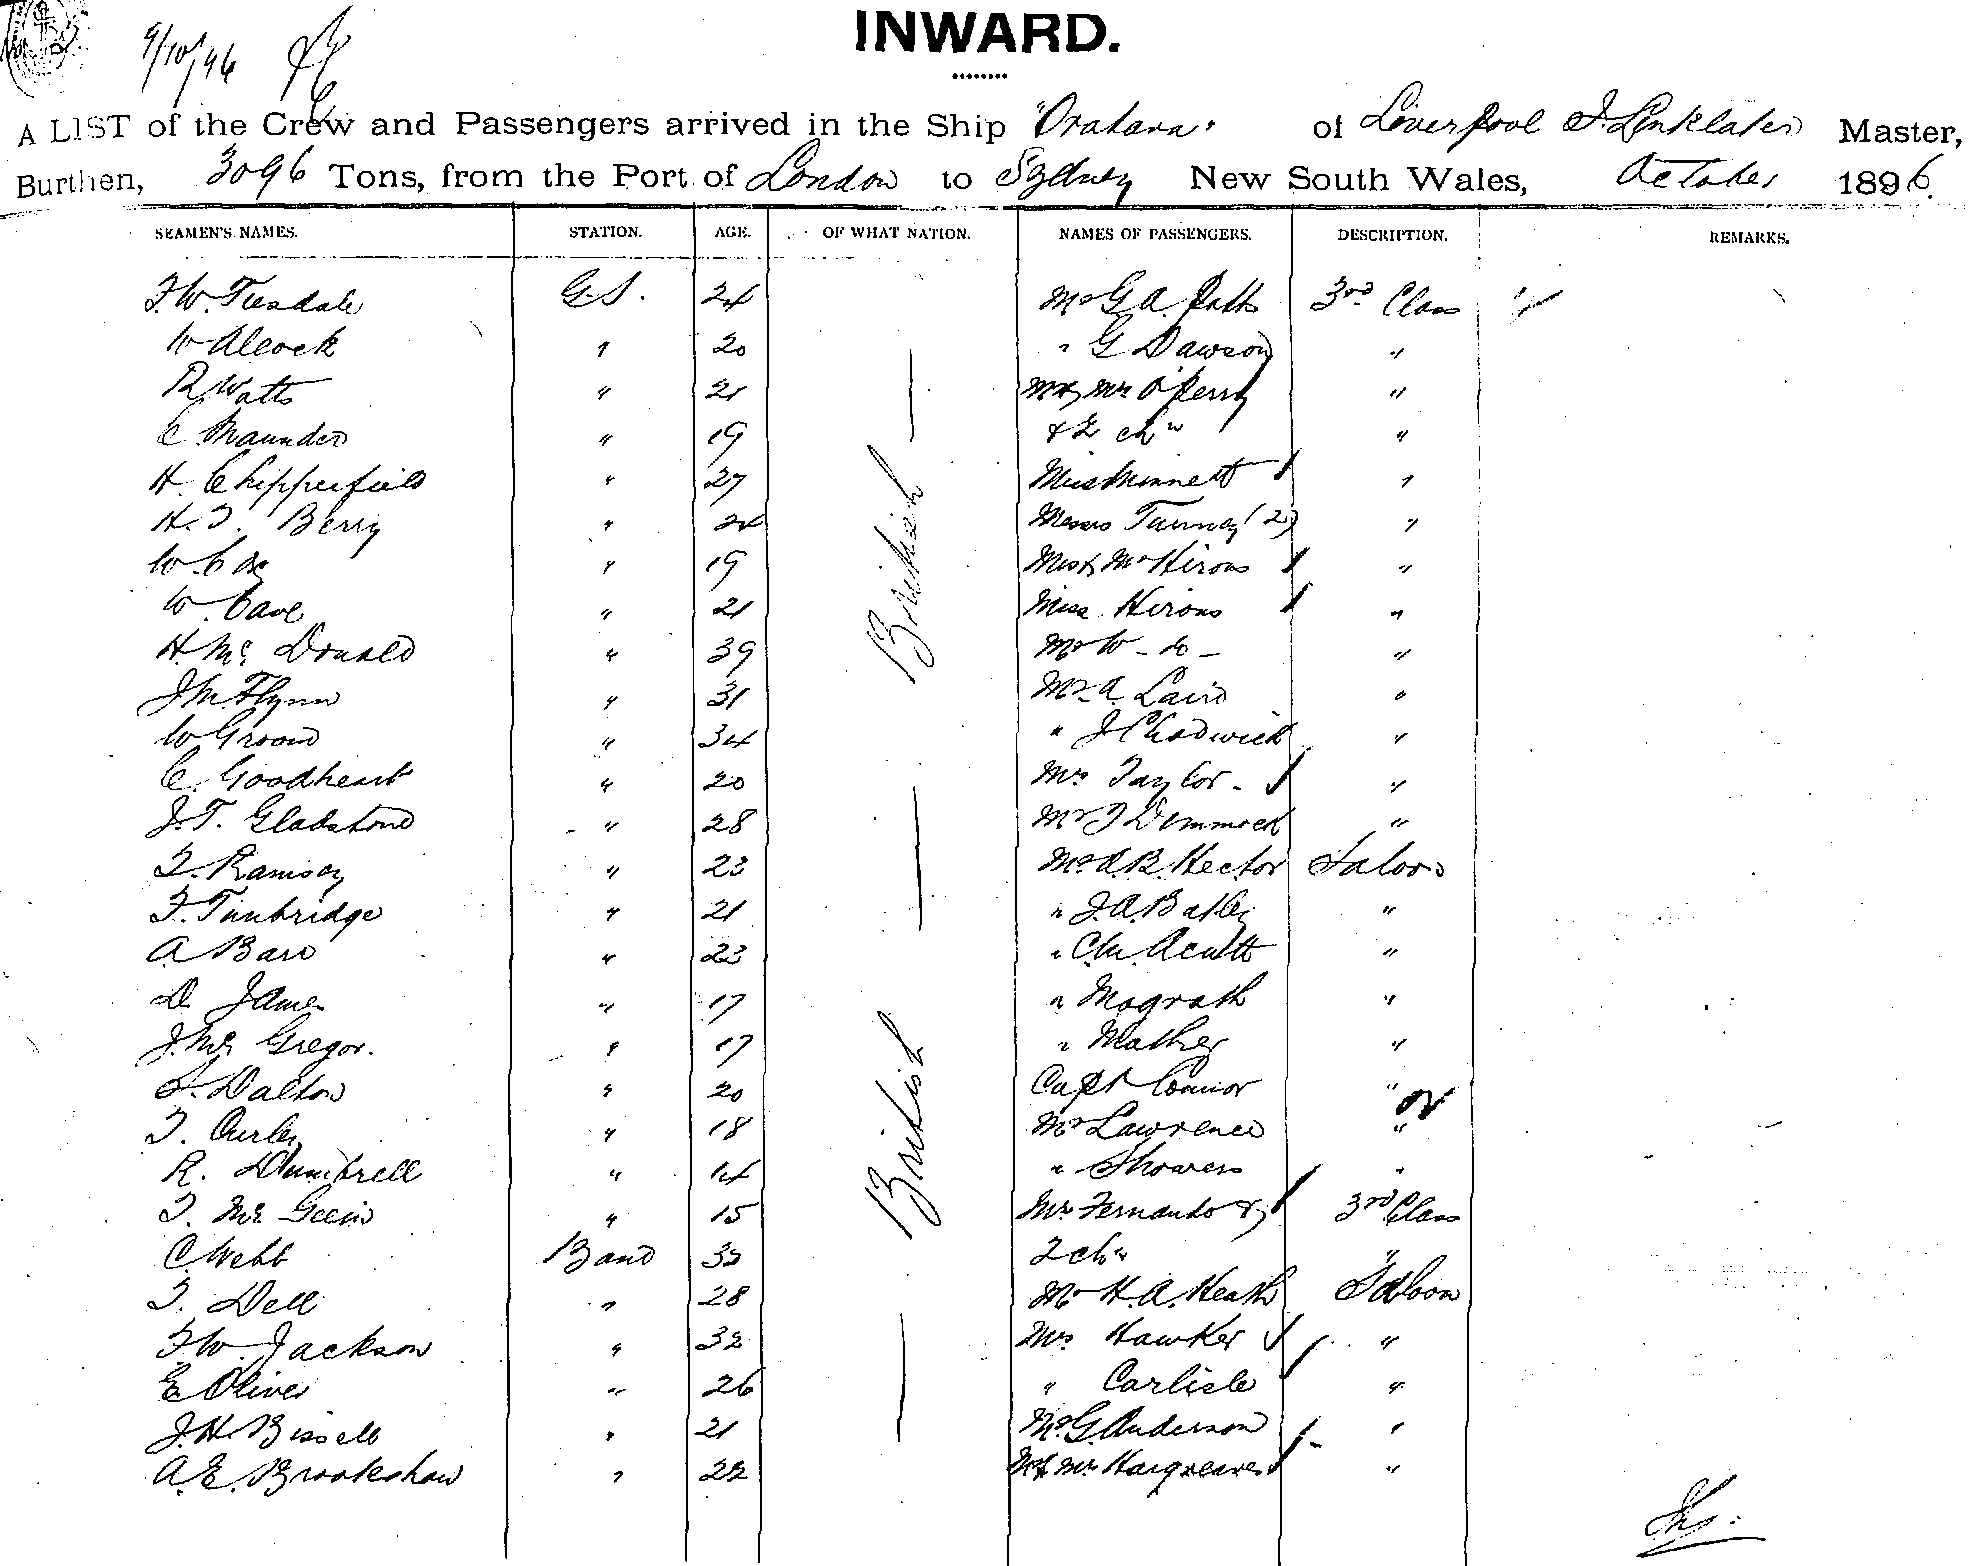 9/10/96
INWARD.
A LIST of the Crew and Passengers arrived in the Ship "Orotava" of Liverpool J. Linklater Master,
Burthen, 3096 Tons, from the Port of London to Sydney New South Wales, October 1896.
SEAMEN'S NAMES. STATION. AGE. OF WHAT NATION. NAMES OF PASSENGERS. DESCRIPTION. REMARKS.
F.W. Teesdale G.S. 24 Mr G A Potts 3rd Class
W Alcock " 20 " G Dawson "
R Watts " 21 Mr & Mrs O'Perry "
C. Maunder " 19 & 2 chn "
H. Chipperfield " 27 Miss Minnett "
H.T. Berry " 24 Messrs Tunney (2) "
W. Cox " 19 Mr & Mrs Hirons "
W. Cave " 21 Miss Hirons "
H. Mc Donald 39 Mr W - do - "
J M Flynn " 31 Mr A. Laird "
W Groom " 34 " J Chadwick "
C. Goodheart " 20 Mrs Taylor - "
J.T. Gladstone " 28 Mr J Dimmock "
T. Ramsay " 23 Mr A.B. Hector Saloon
F. Tunbridge " 21 " J.A. Batley "
A Bard " 23 " C.M. Acutt "
D James " 17 " Mograth "
J. Mc Gregor. " 17 " Mather "
S. Dalton " 20 Capt Connor "
T. Curley " 18 Mr Lawrence "
R. Dumbrell " 14 " Showers "
T. Mc Geein " 15 Mrs Fernando & 3rd Class
C Webb Band 35 2 chn "
T. Dell " 28 Mr H.A. Heath Saloon
F.W. Jackson " 32 Mrs Hawker "
E Oliver " 26 " Carlisle "
J.H. Bissell " 21 Mr G. Anderson "
A.E. Brookshaw " 22 Mr & Mrs Hargreaves "
British
British